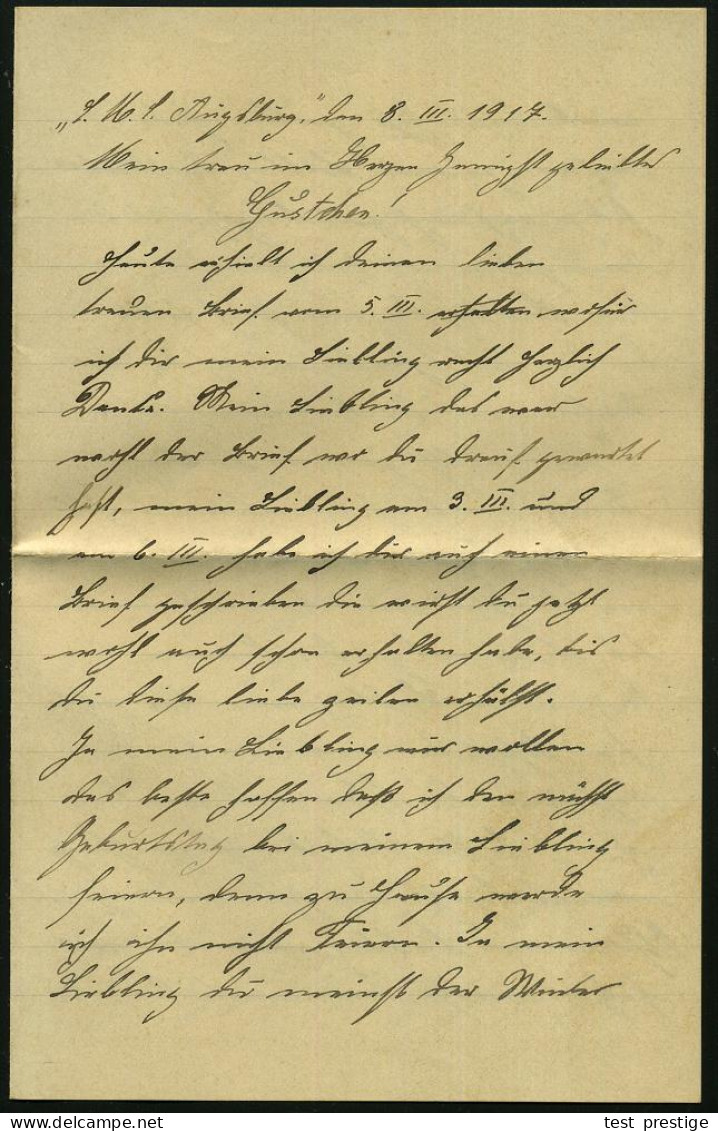 „S. M. S. Augsburg," den 8. III. 1917.
Mein treu im Herzen Innigst geliebtes
Gustchen!
Heute erhielt ich deinen lieben
treuen Brief vom 5. III. erhalten wofür
ich dir mein Liebling recht Herzlich
Danke. Mein Liebling das war
wohl der Brief wo du drauf gewartet
hast, mein Liebling am 3. III. und
am 6. III. habe ich dir auch einen
Brief geschrieben die wirst du jetzt
wohl auch schon erhalten habe, bis
du diese liebe zeilen erhälst.
Ja mein Liebling wir wollen
das beste hoffen daß ich den nächst
Geburtstag bei meinem Liebling
feiern, denn zu Hause werde
ich ihn nicht Feiern. Ja mein
Liebling du meinst der Winter
test prestige